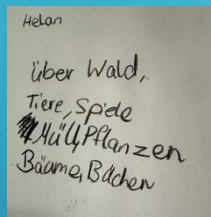 Helan
über Wald,
Tiere, Spiele
Müll, Pflanzen
Bäume, Bächen